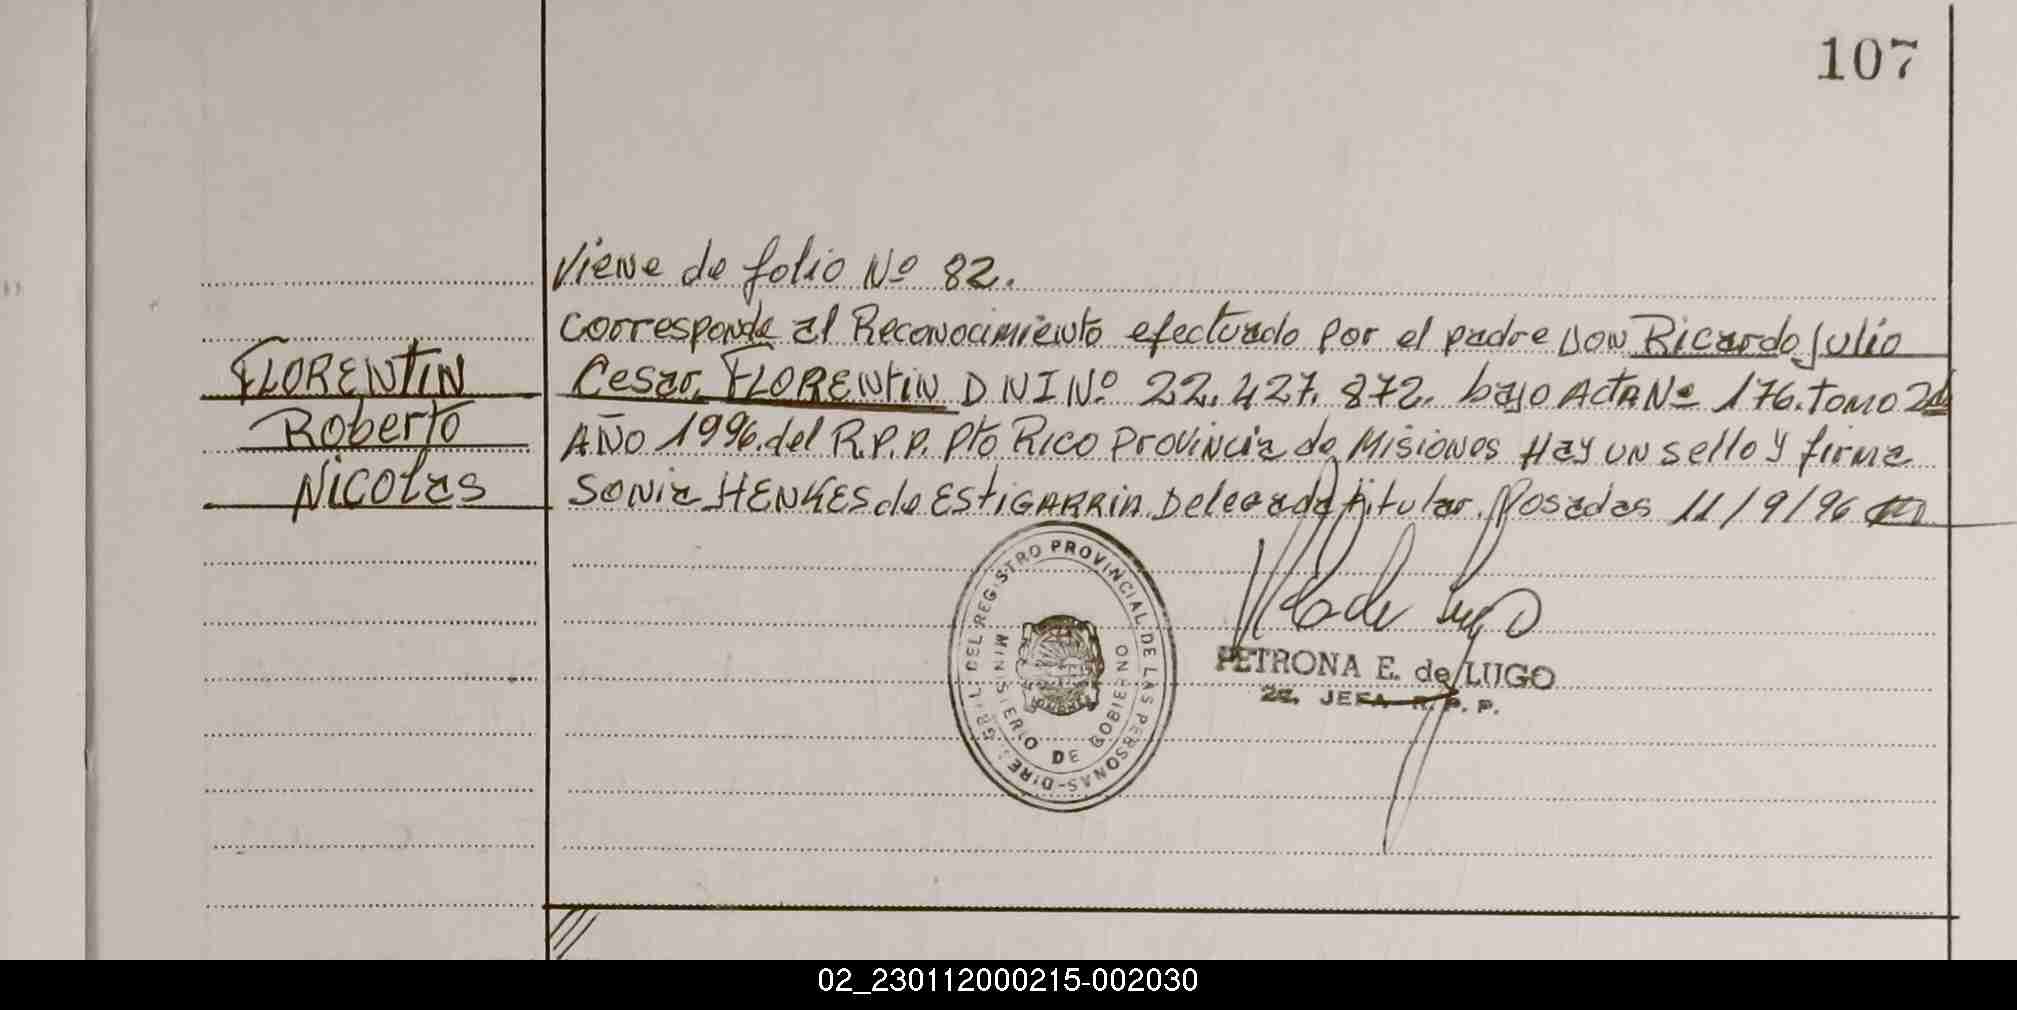 107
Viene de folio Nº 82.
Corresponde al Reconocimiento efectuado por el padre Don Ricardo Julio
FLORENTIN
Cesar FLORENTIN D N I Nº 22.427.872. bajo Acta Nº 176. Tomo 2º
Roberto
AÑO 1996. del R.P.P. Pto Rico Provincia de Misiones Hay un sello y firma
Nicolas
Sonia HENKES de ESTIGARRIA. Delegada titular. Posadas 11/9/96
DIREC. GRAL. DEL REGISTRO PROVINCIAL DE LAS PERSONAS
MINISTERIO DE GOBIERNO
PETRONA E. de LUGO
2a. JEFA R. P. P.
02_230112000215-002030